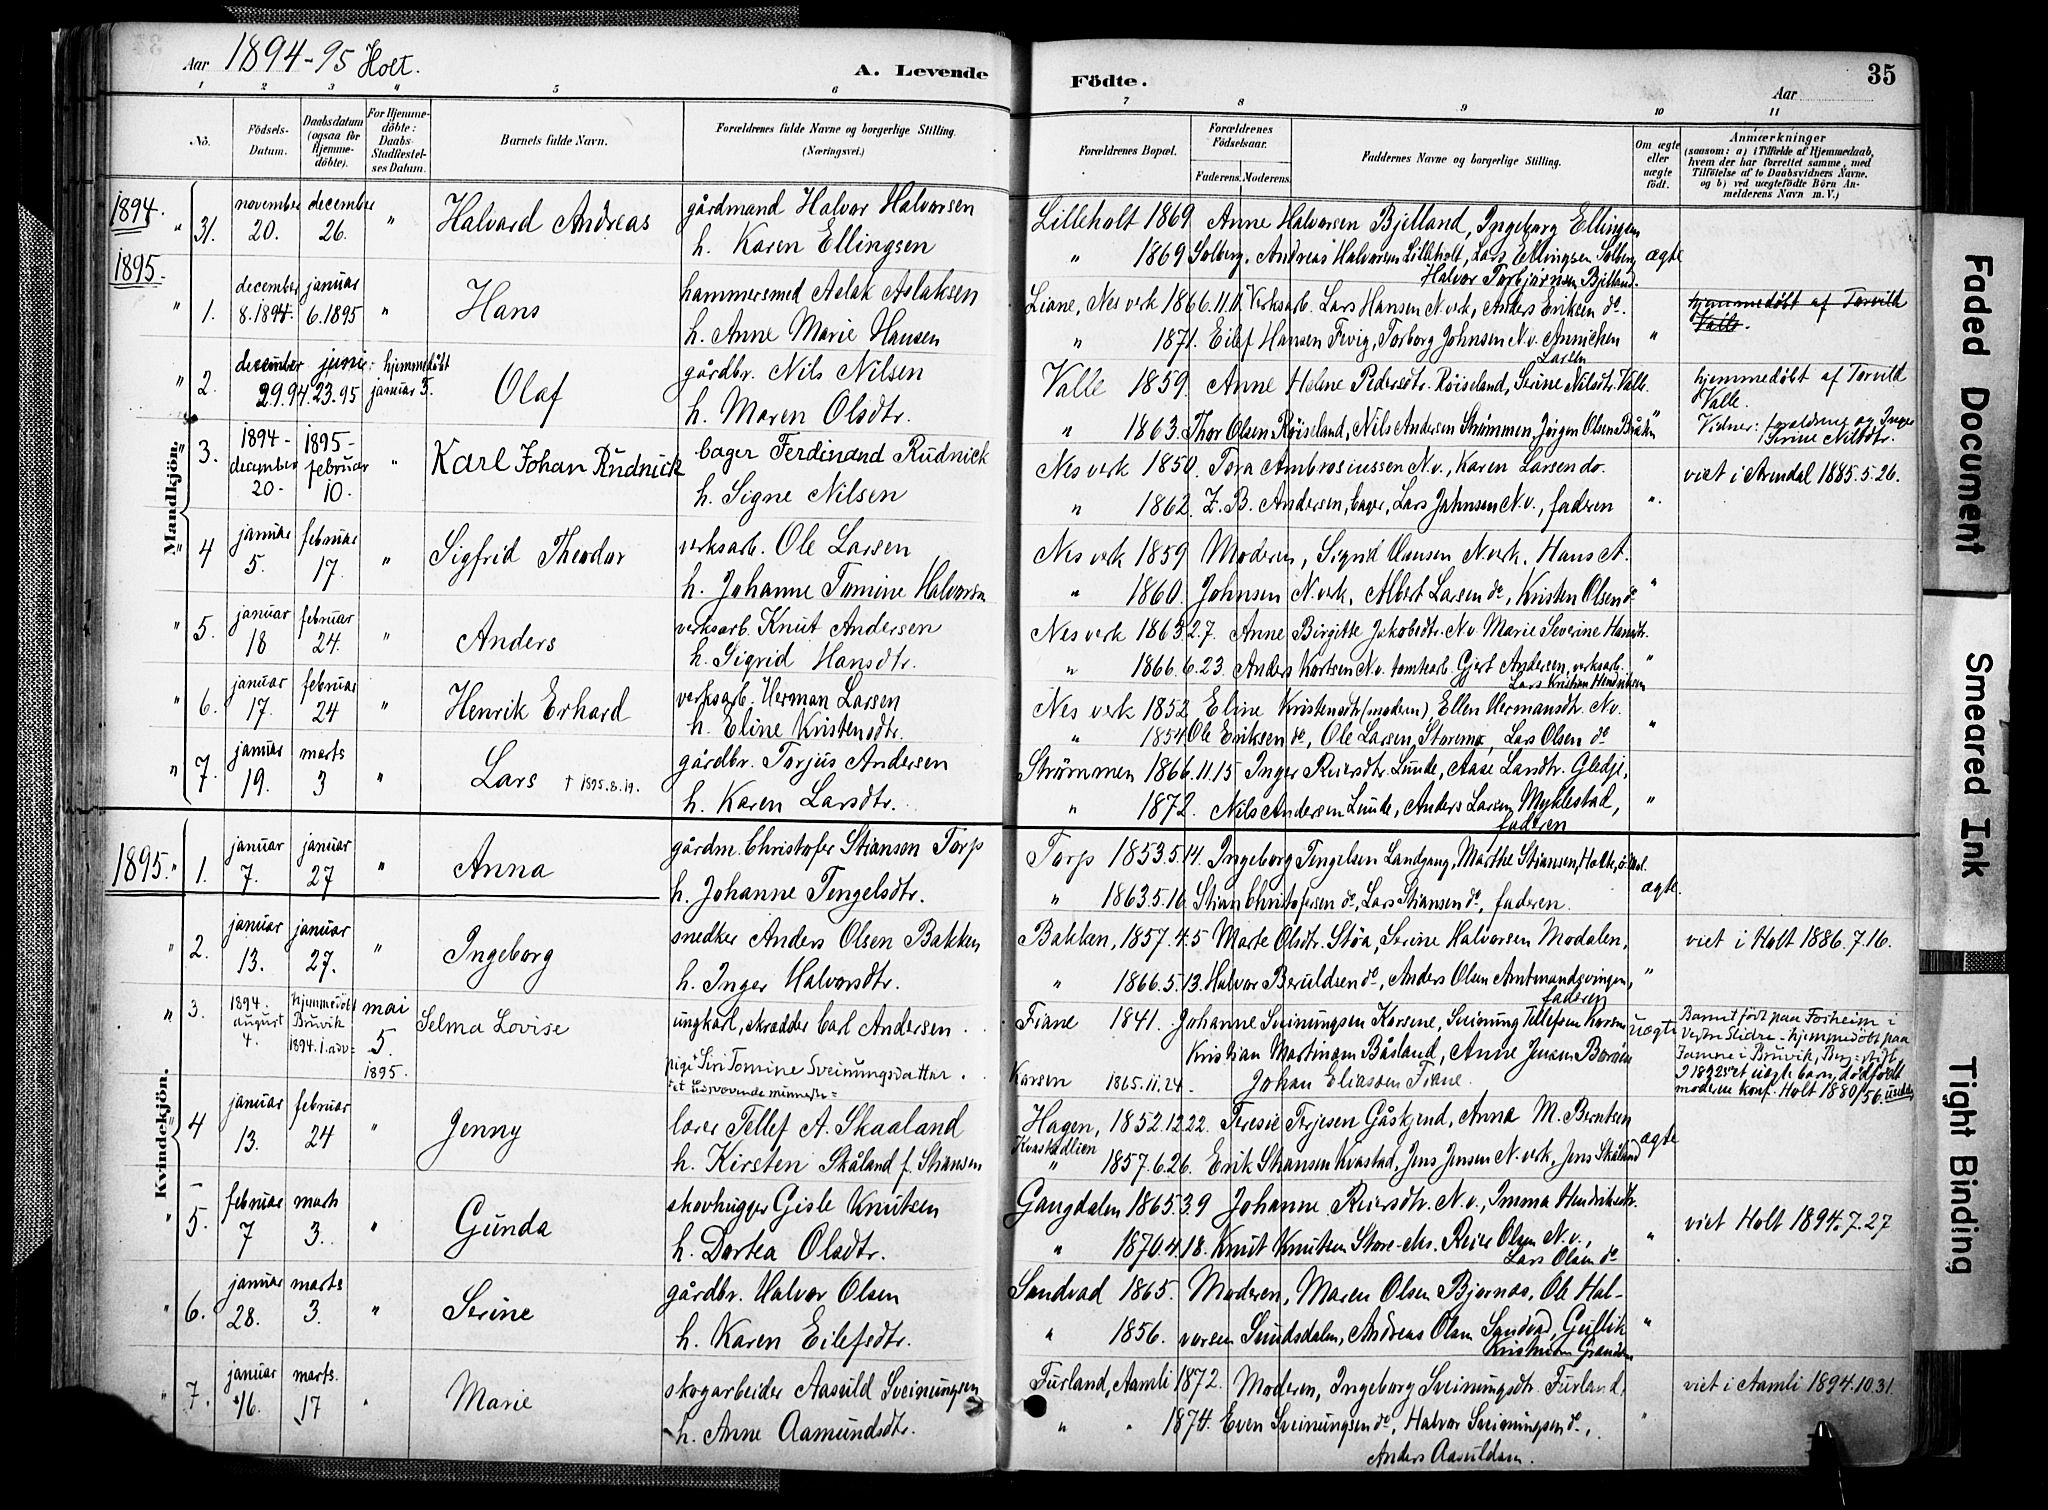 Aar 1894-95 Holt.
A. Levende
Födte.
35
Aar
1 2 3 4 5 6 7 8 9 10 11
No.
Födsels-Datum.
Daabsdatum (ogsaa for Hjemmedöbte).
For Hjemmedöbte: Daabs-Stadfæstelses Datum.
Barnets fulde Navn.
Forældrenes fulde Navne og borgerlige Stilling.
(Næringsvei.)
Forældrenes Bopæl.
Forældrenes Födselsaar.
Faderens. Moderens.
Faddernes Navne og borgerlige Stilling.
Om ægte eller uægte födt.
Anmærkninger
(saasom: a) i Tilfælde af Hjemmedaab,
hvem der har forrettet samme, med
Tilföielse af to Daabsvidners Navne.
og b) ved uægtefödte Börn Anmelderens Navn m. V.)
Mandkjön.
1894. " 31. november 20. december 26. " Halvard Andreas
gårdmand Halvor Halvorsen
h. Karen Ellingsen
Lilleholt 1869 Anne Halvorsen Bjelland, Ingeborg Ellingsen
" 1869 Solberg. Andreas Halvorsen Lilleholt, Lars Ellingsen Solberg ægte
Halvor Torbjørnsen Bjelland.
1895.
" 1. december 8.1894. januar 6.1895 " Hans
hammersmed Aslak Aslaksen
h. Anne Marie Hansen
Liane, Nes verk 1866.11.11. Verksarb. Lars Hansen N. verk, Anders Eriksen do.
" 1871. Eilef Hansen Fevig, Torborg Johnsen N.v. Annichen Larsen "
hjemmedöbt af Torvild
Valle.
" 2. december 29.94. juni 23.95 hjemmedöbt januar 5. Olaf
gårdbr. Nils Nilsen
h. Maren Olsdtr.
Valle 1859. Anne Helene Pedersdtr. Röiseland, Serine Nilsdtr. Valle.
" 1863. Thor Olsen Röiseland, Nils Andersen Strømmen, Jörgen Olsen Bråten "
hjemmedöbt af Torvild
Valle.
Vidner: forældrene og Inger
Serine Nilsdtr.
" 3. 1894 - december 20. 1895 - februar 10. " Karl Johan Rudnick
bager Ferdinand Rudnick
h. Signe Nilsen
Nes verk 1850. Tora Ambrosiussen N.v., Karen Larsen do.
" 1862. Z. B. Andersen, bager, Lars Jahnsen N.v., faderen "
viet i Arendal 1885.5.26.
" 4 januar 5. februar 17. " Sigfrid Theodor
verksarb. Ole Larsen
h. Johanne Tomine Halvorsen
Nes verk 1859 Moderen, Sigrid Hansen N. verk, Hans A.
" 1860. Johnsen N. verk, Albert Larsen do, Kristen Olsen do "
" 5. januar 18 februar 24. " Anders
verksarb. Knut Andersen
h. Sigrid Hansdtr.
Nes verk 1863.2.7. Anne Birgitte Jakobsdtr. N.v. Marie Severine Hansdtr.
" 1866.6.23 Anders Kortsen N.v. tomtearb. Gjert Andersen, verksarb. "
Lars Kristian Hendriksen
" 6. januar 17. februar 24 " Henrik Erhard
verksarb. Herman Larsen
h. Eline Kristensdtr.
Nes verk 1852 Eline Kristensdtr (moderen) Ellen Hermansdtr. N.v.
" 1854 Ole Eriksen do, Ole Larsen, Storemo, Lars Olsen do "
" 7. januar 19. marts 3 " Lars † 1895.8.19.
gårdbr. Torjus Andersen
h. Karen Larsdtr.
Strømmen 1866.11.15 Inger Reiersdtr. Lunde, Aase Larsdtr. Gledje,
" 1872. Nils Andersen Lunde, Anders Larsen Myklestad, "
faderen
Kvindekjön.
1895. " 1. januar 7. januar 27 " Anna
gårdm. Christofer Stiansen Torp
h. Johanne Tengelsdtr.
Torp 1853.5.14. Ingeborg Tengelsen Landgang, Marthe Stiansen, Holte,
" 1863.5.16. Stian Christofersen do, Lars Stiansen do, faderen. ægte.
" 2. januar 13. januar 27. " Ingeborg
snedker Anders Olsen Bakken
h. Inger Halvorsdtr.
Bakken, 1857.4.5 Marte Olsdtr. Støa, Serine Halvorsen Modalen,
" 1866.5.13. Halvor Beruldsen do, Anders Olsen Amtmandsvingen, "
faderen
viet i Holt 1886.7.16.
" 3. 1894. august 4. hjemmedöbt Bruvik 1894.1.adv= mai 5. 1895. Selma Lovise
ungkarl, skrædder Carl Andersen
pige Siri Tomine Sveinungsdatter.
det tidsvovende menneske=
Fiane 1841. Johanne Sveinungsen Karsene, Sveinung Tellefsen Karsene uægte
Kristian Martinsen Båsland, Anne Jensen Borøen
Karsen 1865.11.24. Johan Eliassen Fiane.
Barnet født paa Forheim i
Vestre Slidre - hjemmedöbt paa
i Bruvik,
moderen konf. Holt 1880/56.
" 4 januar 13. februar 24 " Jenny
lærer Tellef A. Skaaland
h. Kirsten Skåland f. Stiansen
Hagen, 1852.12.22. Teresie Terjesen Gåskjend, Anna M. Berntsen
Kvastadlien " 1857.6.26. Erik Stiansen Kvastad, Jens Jensen N. verk, Jens Skåland ægte
" 5. februar 7 marts 3. " Gunda
skovhugger Gisle Knutsen
h. Dortea Olsdtr.
Gangdalen 1865.3.9 Johanne Reiersdtr. N.v., Imma Hendriksdtr.
" 1870.4.18. Knut Knutsen Reier Olsen N.v., "
Lars Olsen do
viet Holt 1894.7.27
" 6. januar 28. marts 3. " Serine
gårdbr. Halvor Olsen
h. Karen Eilefsdtr.
Sandvad 1865. Moderen, Maren Olsen Bjornås, Ole Hal-
" 1856. vorsen Smidsdalen, Andreas Olsen Sandvad, Gullik "
" 7. januar 16. marts. 17 " Marie
skogarbeider Aasuld Sveinungsen
h. Anne Aamundsdtr.
Furland, Aamli 1872. Moderen, Ingeborg Sveinungsdtr. Furland,
" " 1874. Even Sveinungsen do, Halvor Sveinungsen do, "
Anders Aasuldsen.
viet i Aamli 1894.10.31.
Faded Document
Smeared Ink
Tight Binding